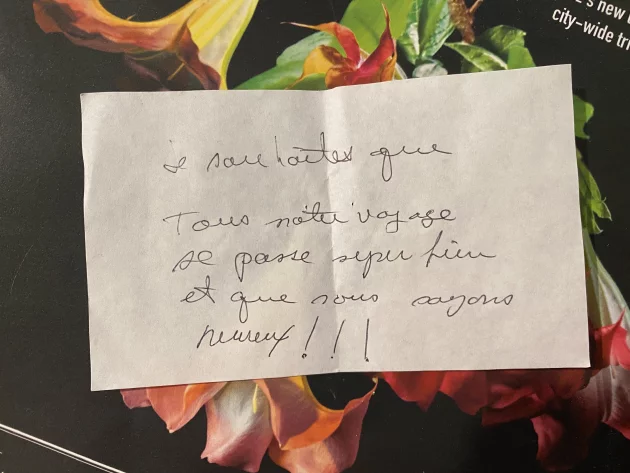 's new
city-wide tri
je souhaites que
Tous notre voyage
se passe super bien
et que nous soyons
heureux!!!